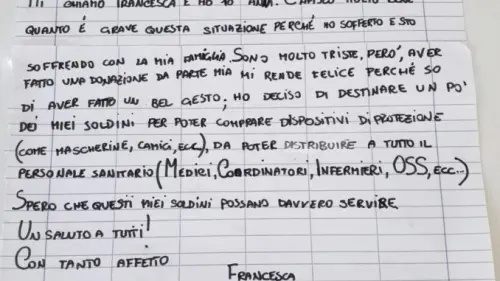 MI CHIAMO FRANCESCA E HO 10 ANNI. CAPISCO MOLTO BENE
QUANTO È GRAVE QUESTA SITUAZIONE PERCHÉ HO SOFFERTO E STO
SOFFRENDO CON LA MIA FAMIGLIA. SONO MOLTO TRISTE, PERO', AVER
FATTO UNA DONAZIONE DA PARTE MIA MI RENDE FELICE PERCHÉ SO
DI AVER FATTO UN BEL GESTO; HO DECISO DI DESTINARE UN PO'
DEI MIEI SOLDINI PER POTER COMPRARE DISPOSITIVI DI PROTEZIONE
(COME MASCHERINE, CAMICI, ECC.), DA POTER DISTRIBUIRE A TUTTO IL
PERSONALE SANITARIO (MEDICI, COORDINATORI, INFERMIERI, OSS, ECC...)
SPERO CHE QUESTI MIEI SOLDINI POSSANO DAVVERO SERVIRE
UN SALUTO A TUTTI!
CON TANTO AFFETTO
FRANCESCA